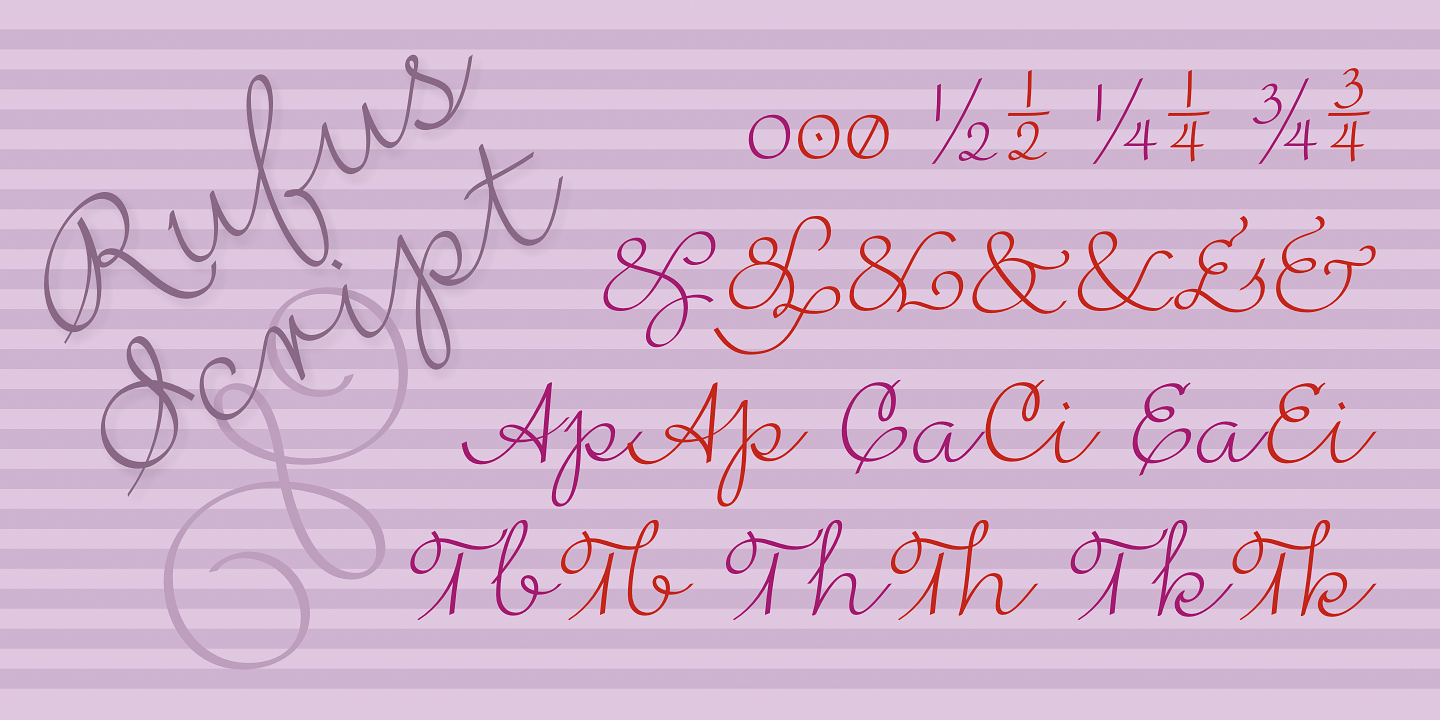 Rufus
Script
000 1/2 1/2 1/4 1/4 3/4 3/4
& & & & & & &
Ap Ap Ca Ci Ea Ei
Tb Tb Th Th Tk Tk